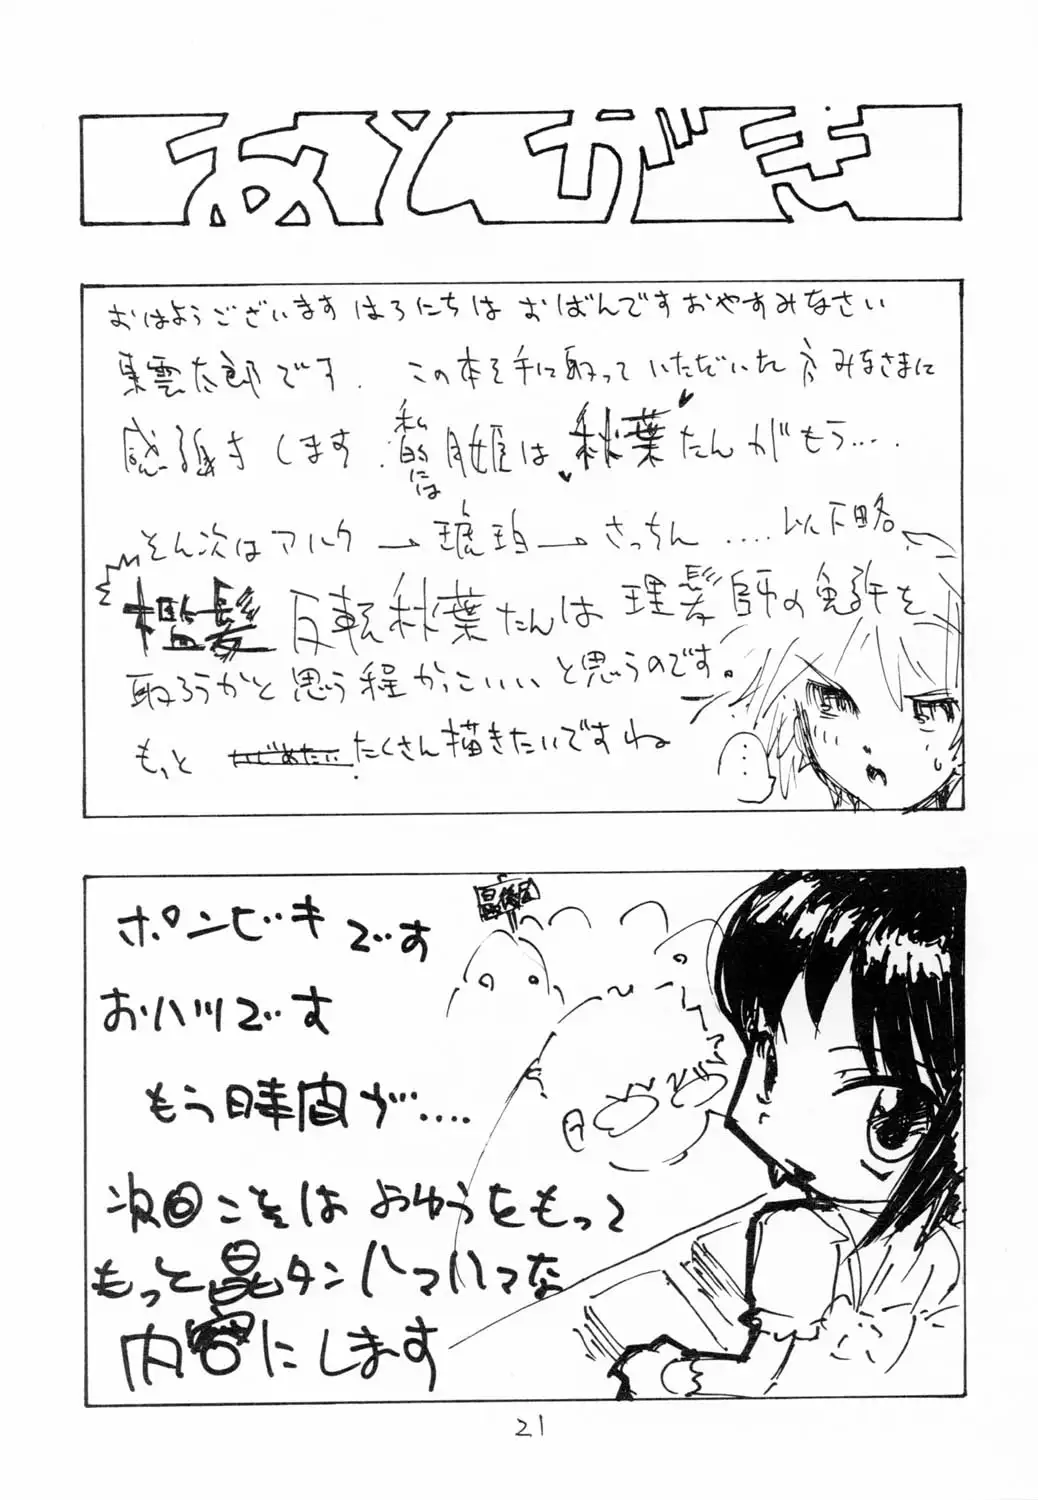 あとがき
おはようございます はろにちは おばんです おやすみなさい
東雲太郎です. この本を手に取っていただいた方みなさまに
感謝します. 私的には月姫は秋葉たんがもう....
そん次はアルク→琥珀→さっちん ....以下略
檻髪 反転秋葉たんは 理髪師の免許を
取ろうかと思う程かっこいいと思うのです。
もっと いじめたい たくさん描きたいですね
...
最後尾
ポンビキです
おハツです
もう時間が....
次回こそは よゆうをもって
もっと晶タンハァハァな
内容にします
21